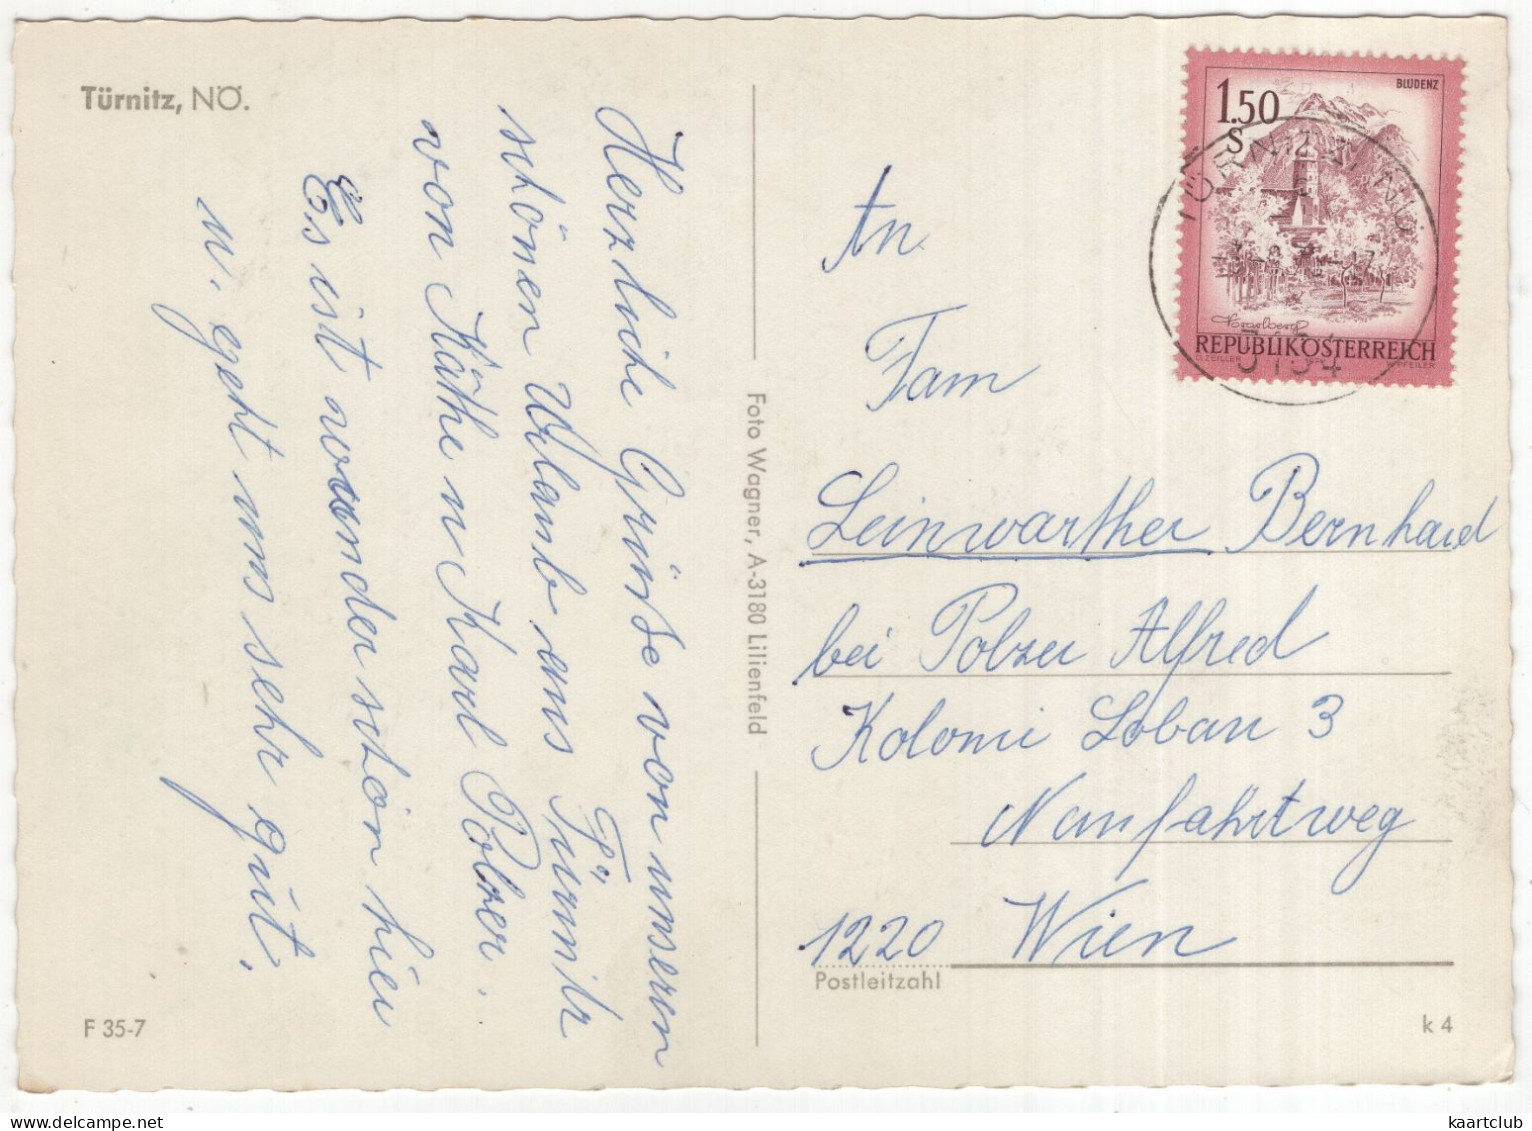 Türnitz, NÖ.
Herzliche Grüsse von unseren
schönen Urlaub aus Türnitz
Tü
von Käthe u Karl Polzer.
Es ist wunderschön hier
u. geht uns sehr gut.
F 35-7
Foto Wagner, A-3180 Lilienfeld
BLUDENZ
1.50
S
Vorarlberg
REPUBLIK ÖSTERREICH
O. ZEILLER 1974 PFEILER
TÜRNITZ, NÖ
3184
An
Fam
Leinwarther Bernhard
bei Polzer Alfred
Kolonie Lobau 3
Naufahrtweg
1220 Wien
Postleitzahl
k 4
kaartclub